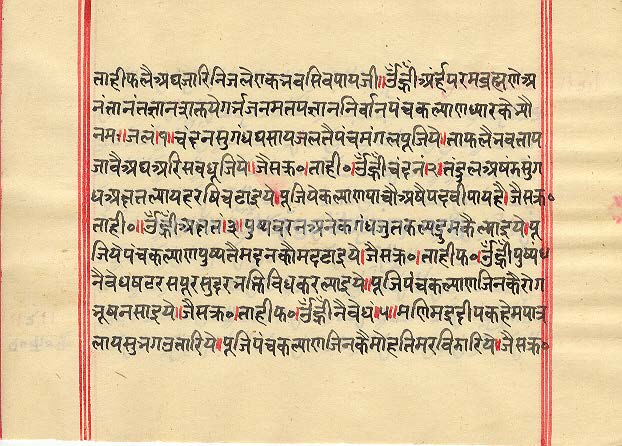 ताहीफलैअघजारिनिजलैएकभवसिवपायजी॥ॐह्रीअर्हपरमब्रह्मणेअ
नंतानंतज्ञानशक्तयेगर्भजनमतपज्ञाननिर्वानपंचकल्याणधारकेभ्यौ
नमः॥जलं।१।चंदनसुगंधघसायजलतैपंचमंगलपूजिये॥ताफलैभवताप
जावैअघअरिसबधूजिये॥जैसक्र॰॥ताही॰॥ॐह्रीचंदनं।२।तंदुलअषंतसुग
धअक्षतल्यायहरषिचढाइये॥पूजियेकल्याणपाचौअषैपदवीपायहै॥जैसक्र॰
ताही॰॥ॐह्रीअक्षतं।३।पुष्पवरनअनेकगंधजुतकल्पद्रुमकैल्याइये॥पू
जियेपंचकल्याणपुष्पतैमदनकौमदढाइये॥जैसक्र॰॥ताहीफ॰॥ॐह्रीपुष्पं४
नैवेधषटरसपूरसुंदरभक्तिविधकरल्याइये॥पूजिपंचकल्याणजिनकैरोग
भूषनसाइये॥जैसक्र॰॥ताहीफ॰॥ॐह्रीनैवेध।५।मणिमइदीपकहेमपात्र
लायसुभगउतारिये॥पूजिपंचकल्याणजिनकैमोहतिमरविडारिये॥जैसक्र॰